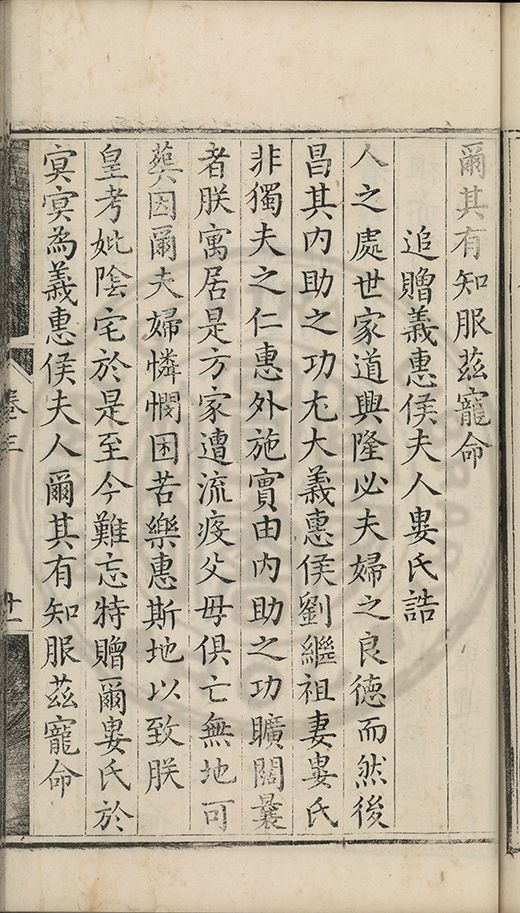 爾其有知服茲寵命
追贈義惠侯夫人婁氏誥
人之處世家道興隆必夫婦之良德而然後
昌其内助之功尤大義惠侯劉繼祖妻婁氏
非獨夫之仁惠外施實由内助之功曠闊曩
者朕寓居是方家遭流疫父母俱亡無地可
塟因爾夫婦憐憫困苦樂惠斯地以致朕
皇考妣陰宅於是至今難忘特贈爾婁氏於
冥冥為義惠侯夫人爾其有知服茲寵命
卷三